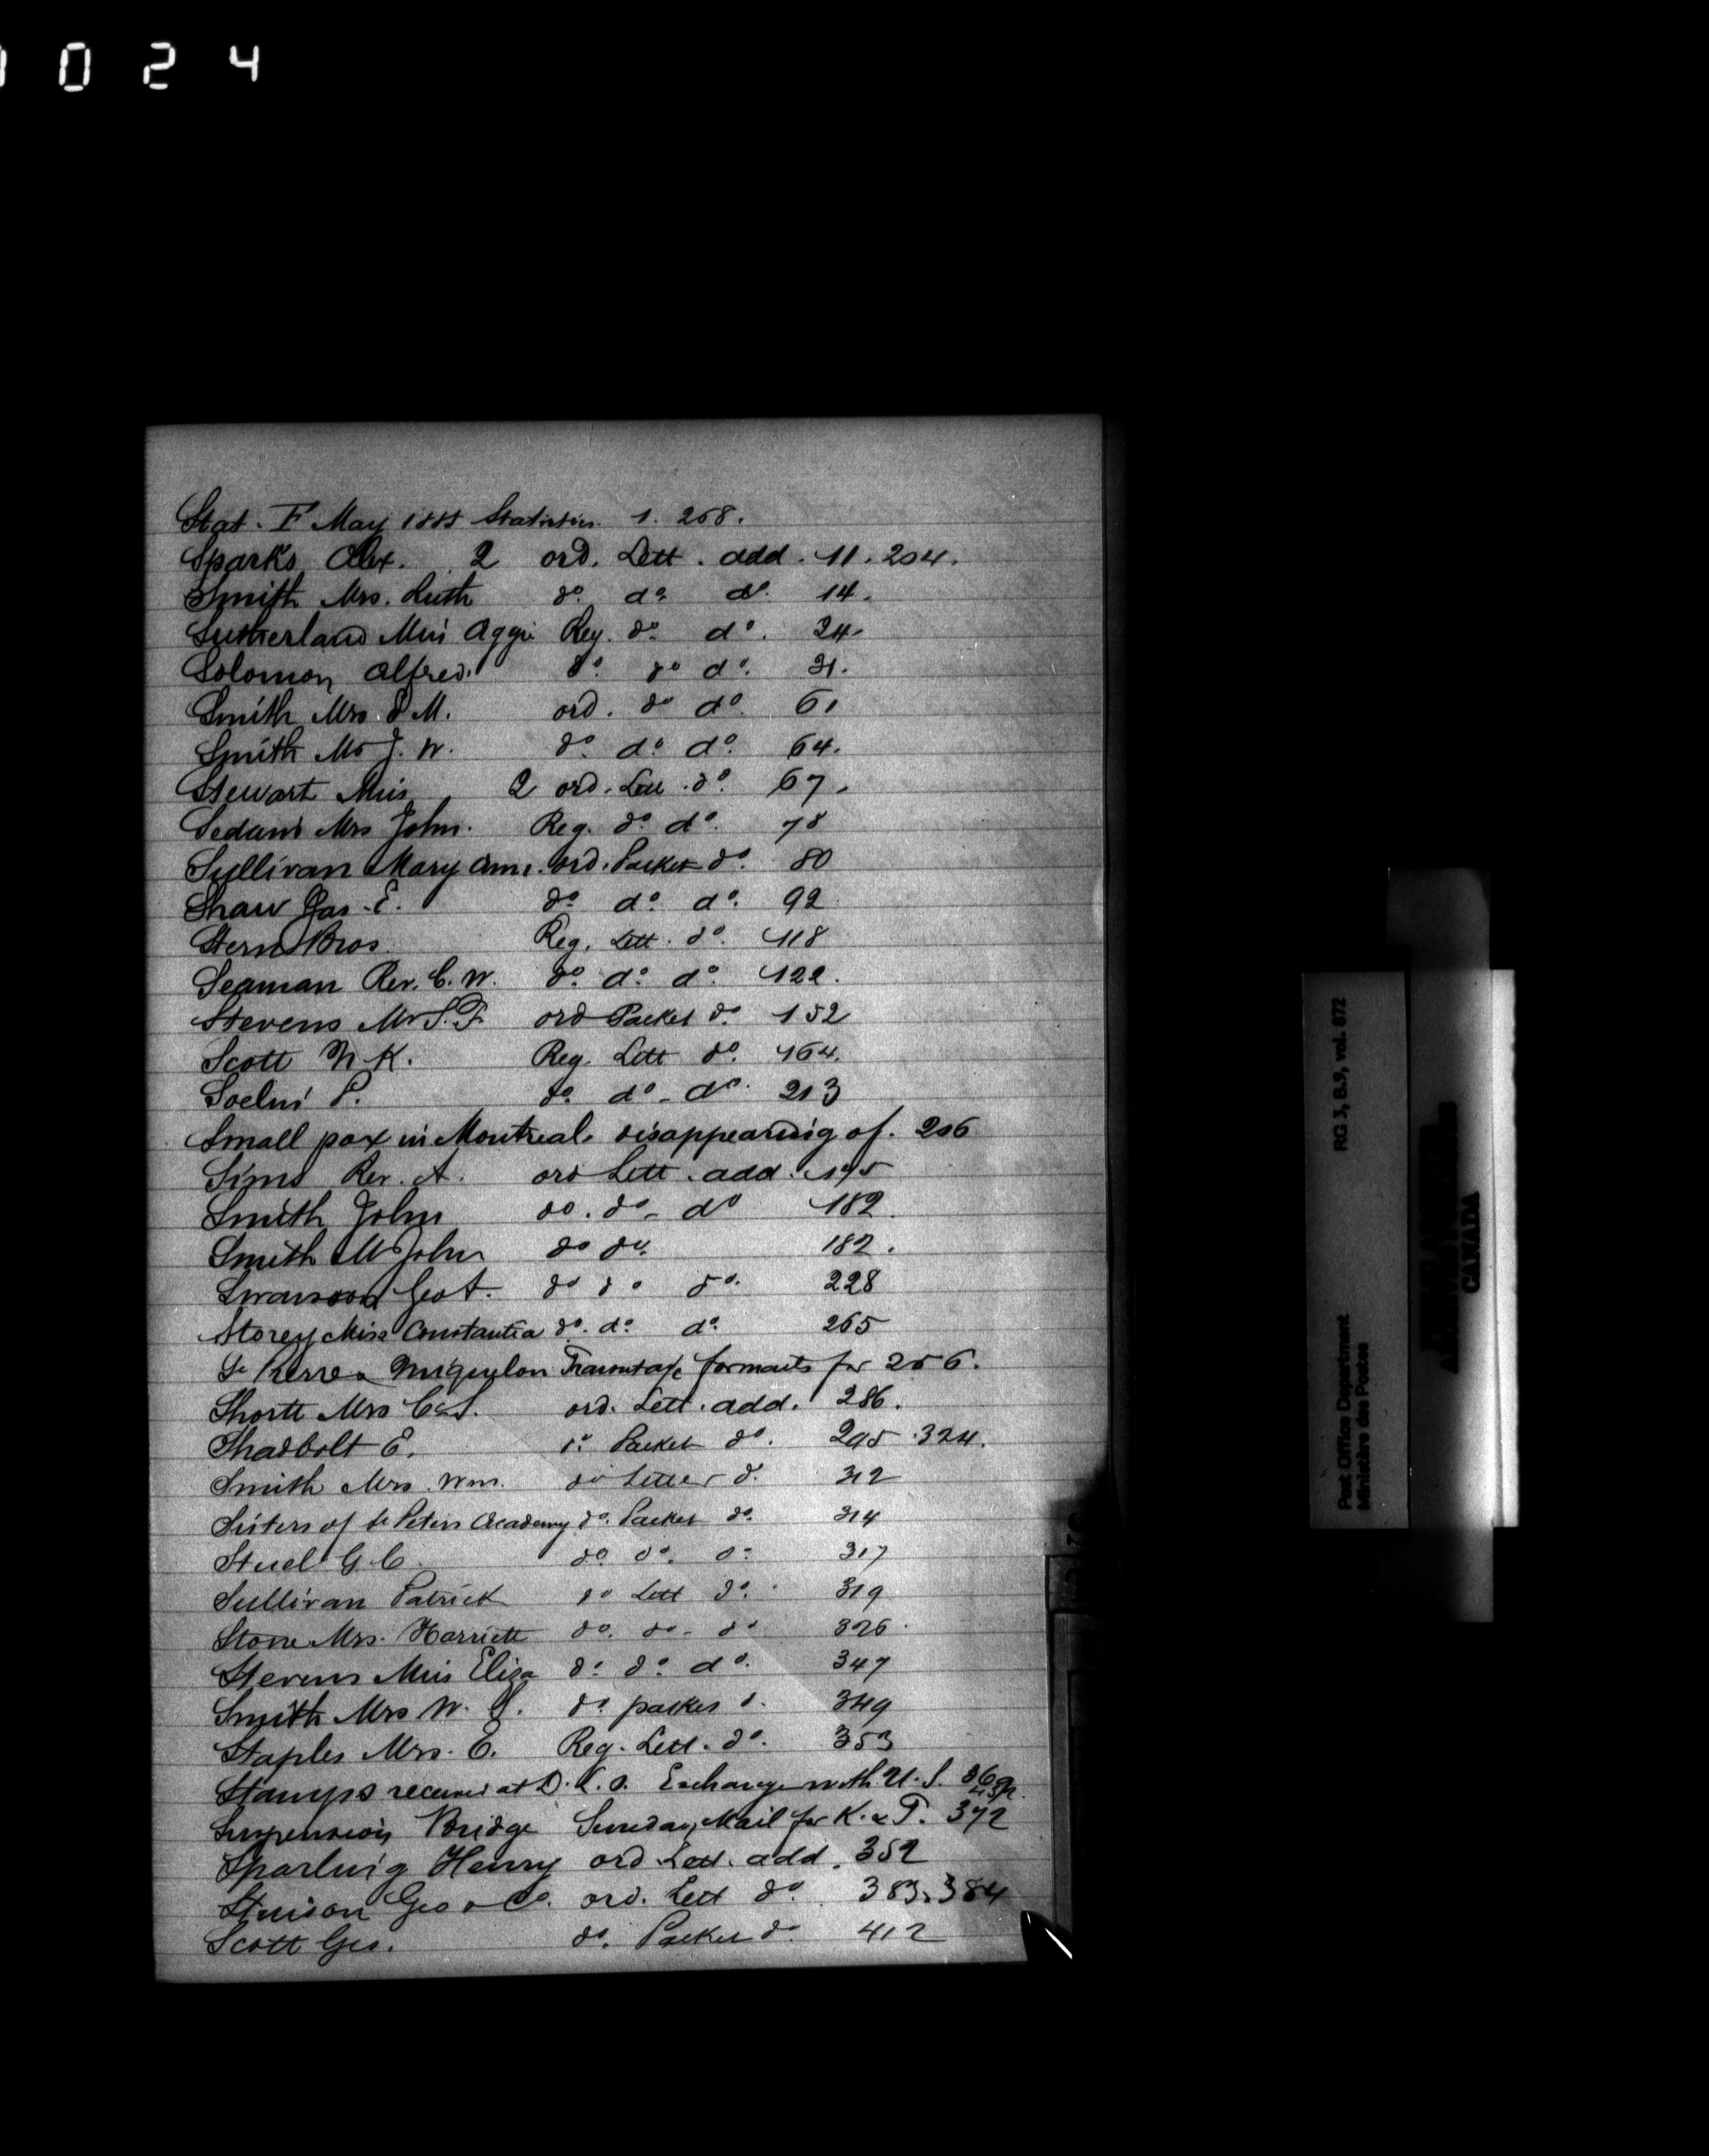 0 2 4
Stat. F May 1885 Statistics. 1. 268.
Sparks Alex. 2 ord. Lett. add. 11. 204.
Smith Mrs. Ruth do. do. do. 14.
Sutherland Miss Aggie Reg. do. do. 24.
Solomon Alfred. do. do do. 31.
Smith Mrs. S M. ord. do do. 61
Smith Mr J. W. do. do. do. 64.
Stewart Miss 2 ord. Lett. do. 67.
Mrs John. Reg. do. do. 78
Sullivan Mary Ann. ord. Packet do. 80
Shaw Jas. E. do. do. do. 92
Stern Bros. Reg. Lett. do. 118
Seaman Rev. C. W. do. do. do. 122.
Stevens Mr S. F. ord Packet do. 152
Scott W K. Reg. Lett do. 164.
P. do. do. do. 213
Small pox in Montreal. disappearing of. 206
Sims Rev. A. ord Lett. add. 175
Smith John do. do. do 182.
Smith Mr John do do. 182.
Swanson Geo A. do do do. 228
Storey Miss Constantia do. do. do. 265
St Pierre & Miquelon for 256.
Shortt Mrs C. S. ord. Lett. add. 286.
Shadbolt E. do. Packet do. 295. 324.
Smith Mrs. Wm. do Letter do. 312
Sisters of St Peters Academy do. Packet do. 314
G. C. do. do. do. 317
Sullivan Patrick do Lett do. 319
Stone Mrs. Harriett do. do. do 326.
Stevens Miss Eliza do. do. do. 347
Smith Mrs W. S. do. packet do. 349
Staples Mrs. E. Reg. Lett. do. 353
Stamps received at D. L. O. Exchange with U. S. 369.
Suspension Bridge Sunday Mail for K. & T. 372
Sparling Henry ord. Lett. add. 352
Stinson Geo & Co. ord. Lett do. 383. 384
Scott Geo. do. Packet do. 412
RG 3, B.9, vol. 872
Post Office Department
Ministère des Postes
CANADA